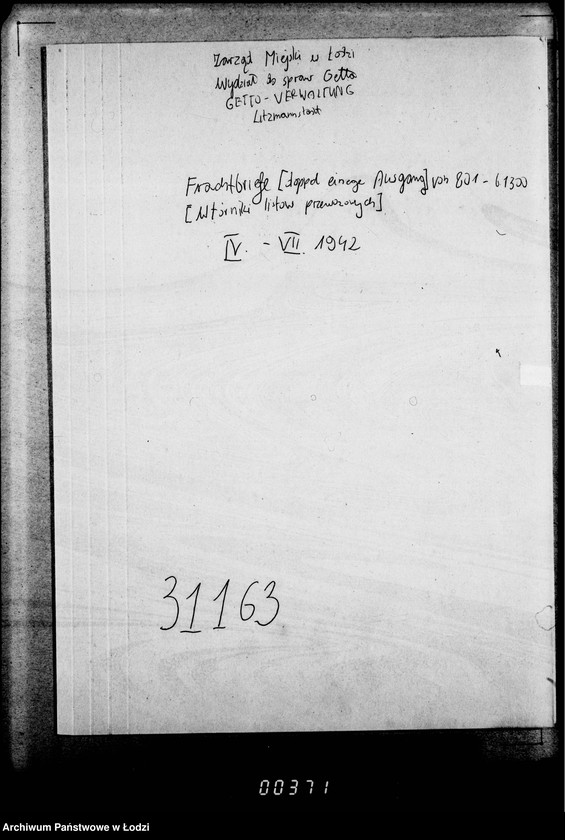 Zarząd Miejski w Łodzi
Wydział do spraw Getta
GETTO-VERWALTUNG
Litzmannstadt
Frachtbriefe [doppel einege Ausgang] von 801 - 61300
[Wtórniki listów przewozowych]
IV. - VII. 1942
31163
00371
Archiwum Państwowe w Łodzi